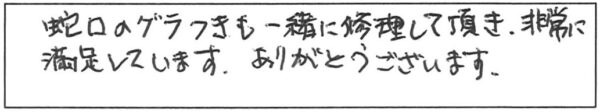 蛇口のグラつきも一緒に修理して頂き、非常に
満足しています。ありがとうございます。